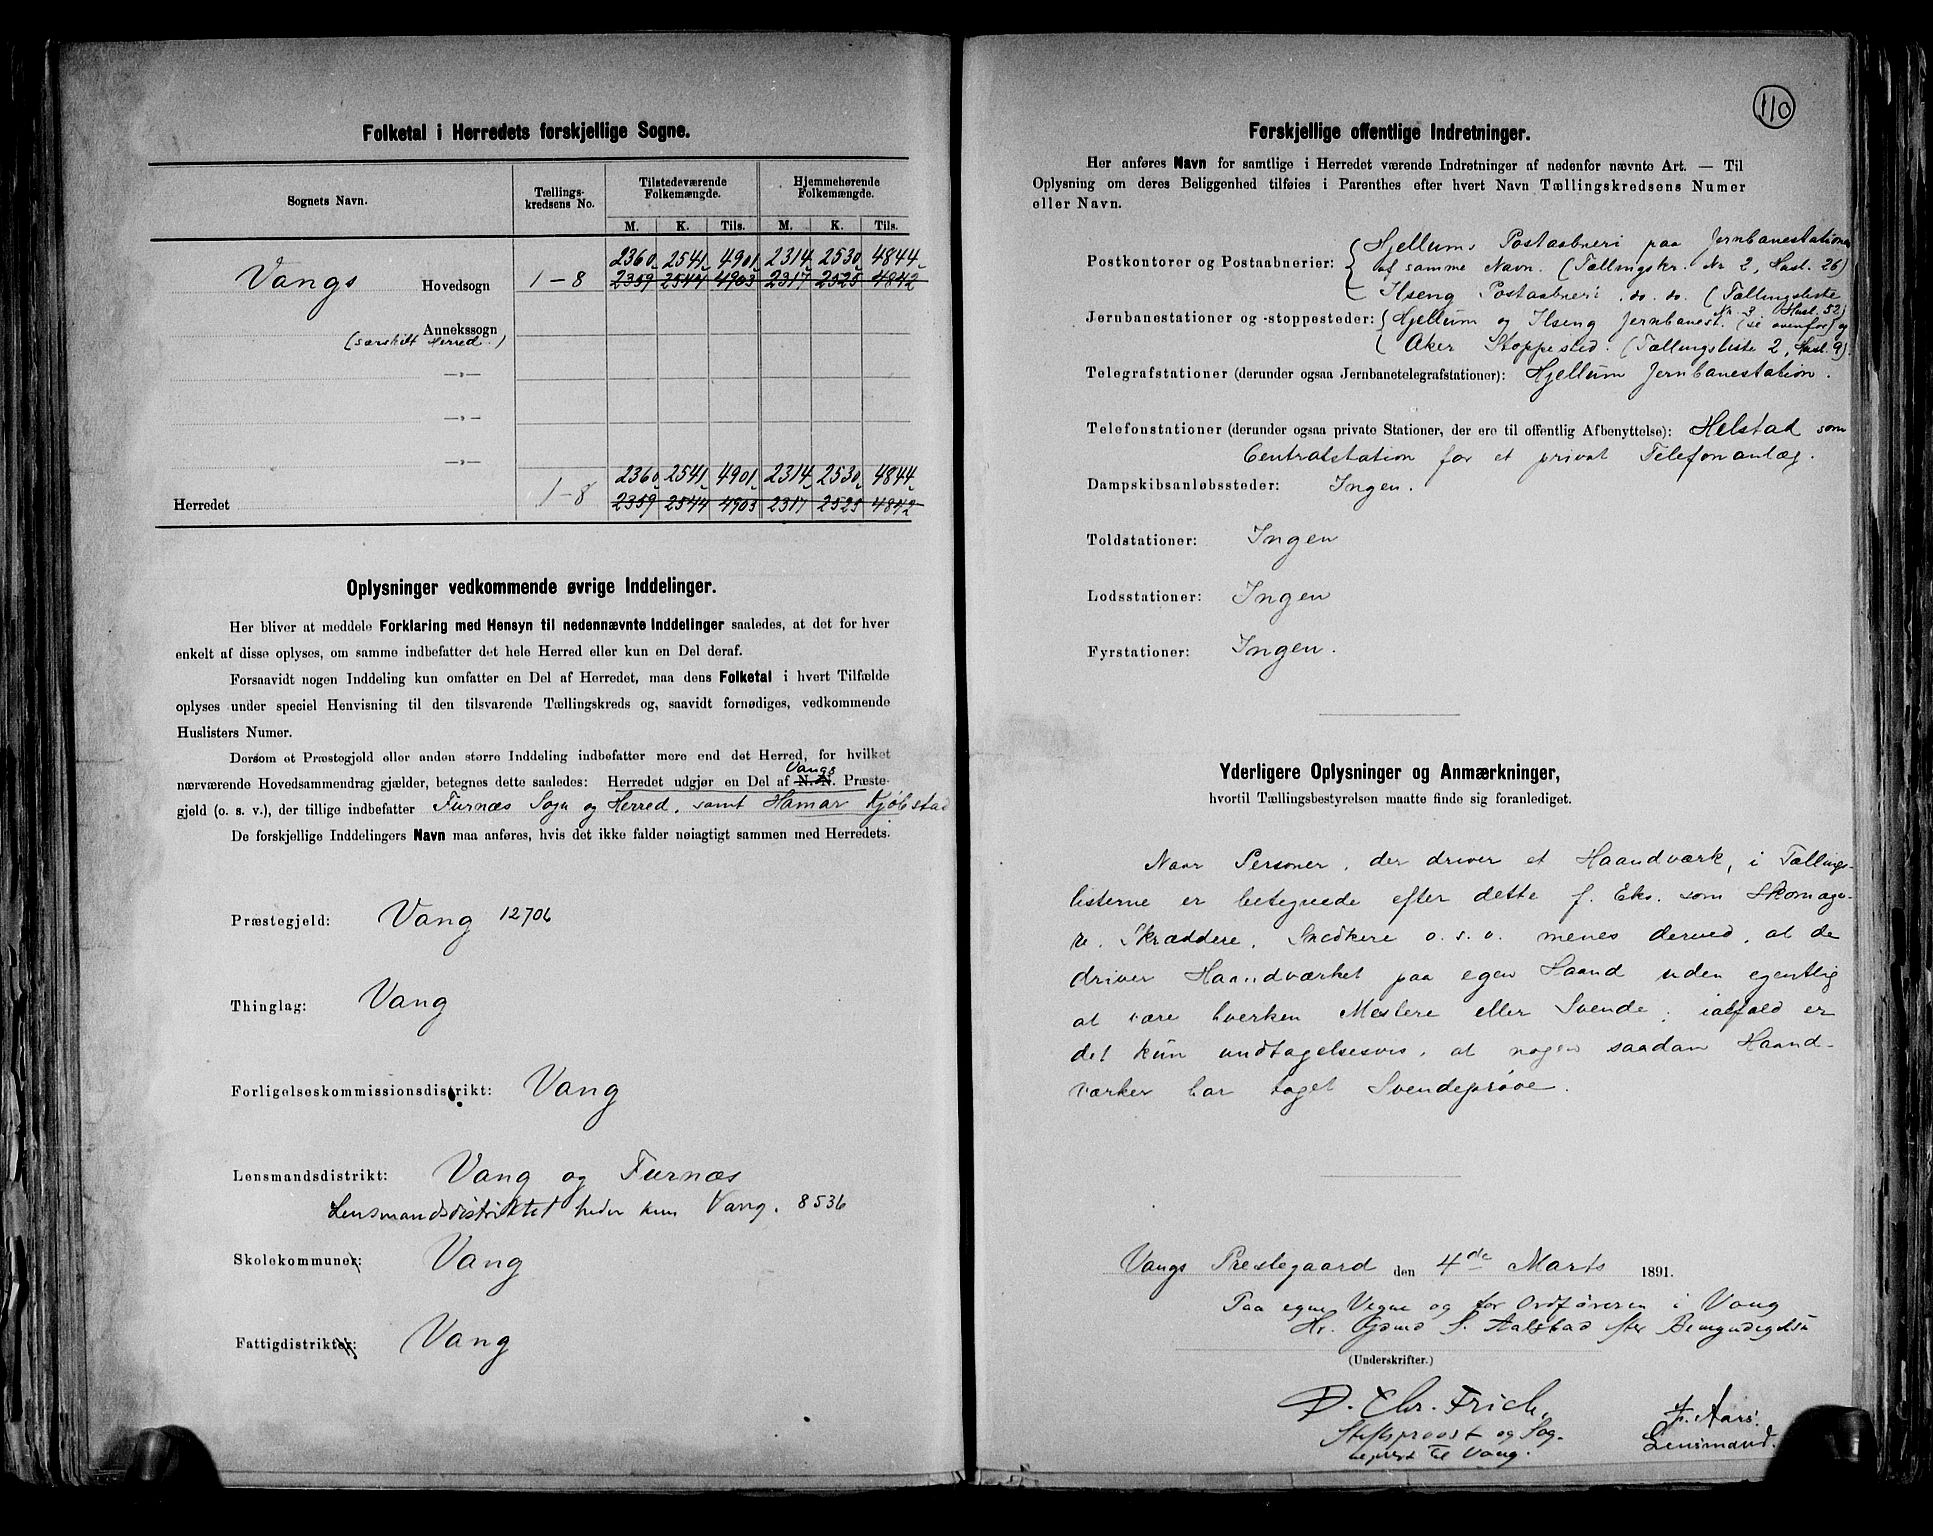 Folketal i Herredets forskjellige Sogne.
Sognets Navn. Tællings-kredsens No. Tilstedeværende Folkemængde. Hjemmehørende Folkemængde.
M. K. Tils. M. K. Tils.
2360 2541 4901 2314 2530 4844
Vangs Hovedsogn 1-8 2359 2544 4903 2317 2525 4842
Annekssogn
(særskilt Herred.)
—„—
—„—
—„—
2360 2541 4901 2314 2530 4844
Herredet 1-8 2359 2544 4903 2317 2525 4842
Oplysninger vedkommende øvrige Inddelinger.
Her bliver at meddele Forklaring med Hensyn til nedennævnte Inddelinger saaledes, at det for hver
enkelt af disse oplyses, om samme indbefatter det hele Herred eller kun en Del deraf.
Forsaavidt nogen Inddeling kun omfatter en Del af Herredet, maa dens Folketal i hvert Tilfælde
oplyses under speciel Henvisning til den tilsvarende Tællingskreds og, saavidt fornødiges, vedkommende
Huslisters Numer.
Dersom et Præstegjeld eller anden større Inddeling indbefatter mere end det Herred, for hvilket
Vangs
nærværende Hovedsammendrag gjælder, betegnes dette saaledes: Herredet udgjør en Del af N. N. Præste-
gjeld (o. s. v.), der tillige indbefatter Furnæs Sogn og Herred, samt Hamar Kjøbstad
De forskjellige Inddelingers Navn maa anføres, hvis det ikke falder nøiagtigt sammen med Herredets.
Præstegjeld: Vang 12706
Thinglag: Vang
Forligelseskommissionsdistrikt: Vang
Lensmandsdistrikt: Vang og Furnæs
Lensmandsdistriktet heder kun Vang. 8536
Skolekommuner: Vang
Fattigdistrikter: Vang
110
Forskjellige offentlige Indretninger.
Her anføres Navn for samtlige i Herredet værende Indretninger af nedenfor nævnte Art. — Til
Oplysning om deres Beliggenhed tilføies i Parenthes efter hvert Navn Tællingskredsens Numer
eller Navn.
Hjellums Postaabneri paa Jernbanestationen
Postkontorer og Postaabnerier: af samme Navn. (Tællingskr. Nr 2, Husl. 26)
Ilseng Postaabneri do. do. (Tællingsliste
Nr. 3 Husl. 52)
Jernbanestationer og -stoppesteder: Hjellum og Ilseng Jernbanest. (se ovenfor) og
Aker Stoppested. (Tællingsliste 2, Husl. 9).
Telegrafstationer (derunder ogsaa Jernbanetelegrafstationer): Hjellum Jernbanestation.
Telefonstationer (derunder ogsaa private Stationer, der ere til offentlig Afbenyttelse): Helstad som
Centralstation for et privat Telefonanlæg.
Dampskibsanløbssteder: Ingen.
Toldstationer: Ingen
Lodsstationer: Ingen
Fyrstationer: Ingen.
Yderligere Oplysninger og Anmærkninger,
hvortil Tællingsbestyrelsen maatte finde sig foranlediget.
Naar Personer, der driver et Haandværk, i Tællings-
listerne er betegnede efter dette f. Eks. som Skomage-
re, Skræddere, Snedkere o. s. v. menes derved, at de
driver Haandværket paa egen Haand uden egentlig
at være hverken Mestere eller Svende; ialfald er
det kun undtagelsesvis, at nogen saadan Haand-
værker har taget Svendeprøve.
Vangs Prestegaard den 4de Marts 1891.
Paa egne Vegne og for Ordføreren i Vang
Hr. S. Aalstad efter Bemyndigelse
(Underskrifter.)
D. Chr. Frich. Fr. Aars.
Stiftsprovst og Sog- Lensmand.
neprest til Vang.